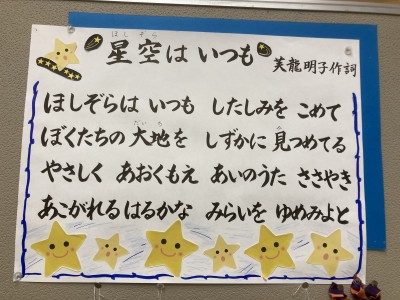 ほしぞら
星空は いつも
芙龍明子作詞
ほしぞらは いつも したしみを こめて
だいち み
ぼくたちの 大地を しずかに 見つめてる
やさしく あおくもえ あいのうた ささやき
あこがれる はるかな みらいを ゆめみよと